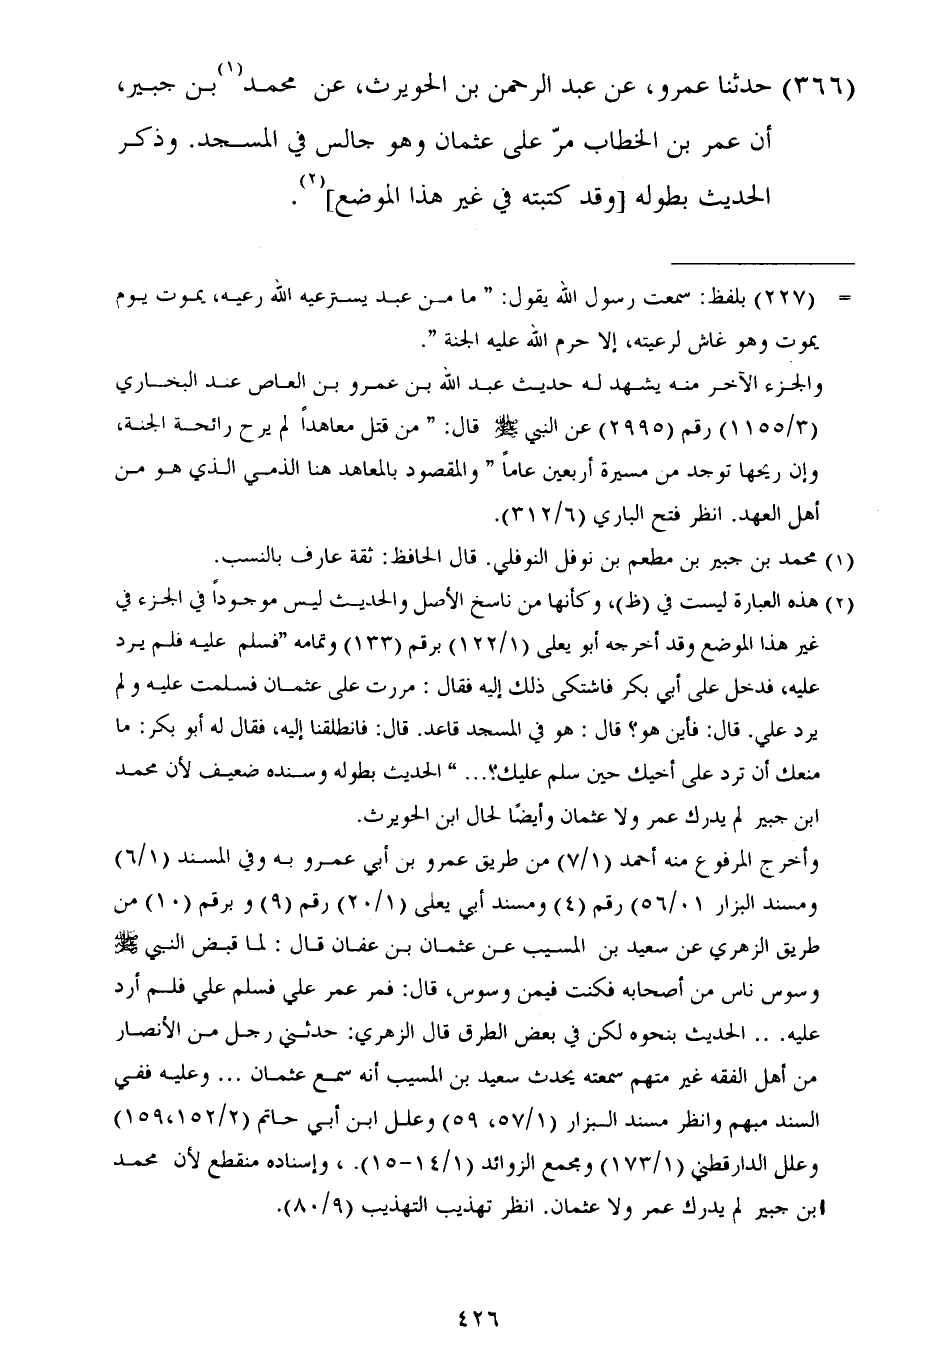 (٣٦٦) حدثنا عمرو، عن عبد الرحمن بن الحويرث، عن محمد(١) بن جبير،
أن عمر بن الخطاب مرّ على عثمان وهو جالس في المسجد. وذكر
الحديث بطوله [وقد كتبته في غير هذا الموضع](٢).
= (٢٢٧) بلفظ: سمعت رسول الله يقول: " ما من عبد يسترعيه الله رعيه، يموت يوم
يموت وهو غاش لرعيته، إلا حرم الله عليه الجنة ".
والجزء الآخر منه يشهد له حديث عبد الله بن عمرو بن العاص عند البخاري
(١١٥٥/٣) رقم (٢٩٩٥) عن النبي ﷺ قال: " من قتل معاهداً لم يرح رائحة الجنة،
وإن ريحها توجد من مسيرة أربعين عاماً " والمقصود بالمعاهد هنا الذمي الذي هو من
أهل العهد. انظر فتح الباري (٣١٢/٦).
(١) محمد بن جبير بن مطعم بن نوفل النوفلي. قال الحافظ: ثقة عارف بالنسب.
(٢) هذه العبارة ليست في (ظ)، وكأنها من ناسخ الأصل والحديث ليس موجوداً في الجزء في
غير هذا الموضع وقد أخرجه أبو يعلى (١٢٢/١) برقم (١٣٣) وتمامه "فسلم عليه فلم يرد
عليه، فدخل على أبي بكر فاشتكى ذلك إليه فقال : مررت على عثمان فسلمت عليه ولم
يرد علي. قال: فأين هو؟ قال : هو في المسجد قاعد. قال: فانطلقنا إليه، فقال له أبو بكر: ما
منعك أن ترد على أخيك حين سلم عليك؟... " الحديث بطوله وسنده ضعيف لأن محمد
ابن جبير لم يدرك عمر ولا عثمان وأيضًا لحال ابن الحويرث.
وأخرج المرفوع منه أحمد (٧/١) من طريق عمرو بن أبي عمرو به وفي المسند (٦/١)
ومسند البزار ٥٦/٠١) رقم (٤) ومسند أبي يعلى (٢٠/١) رقم (٩) و برقم (١٠) من
طريق الزهري عن سعيد بن المسيب عن عثمان بن عفان قال : لما قبض النبي ﷺ
وسوس ناس من أصحابه فكنت فيمن وسوس، قال: فمر عمر علي فسلم علي فلم أرد
عليه. .. الحديث بنحوه لكن في بعض الطرق قال الزهري: حدثني رجل من الأنصار
من أهل الفقه غير متهم سمعته يحدث سعيد بن المسيب أنه سمع عثمان ... وعليه ففي
السند مبهم وانظر مسند البزار (٥٧/١، ٥٩) وعلل ابن أبي حاتم (١٥٢/٢،١٥٩)
وعلل الدارقطني (١٧٣/١) ومجمع الزوائد (١٤/١-١٥). ، وإسناده منقطع لأن محمد
ابن جبير لم يدرك عمر ولا عثمان. انظر تهذيب التهذيب (٨٠/٩).
٤٢٦